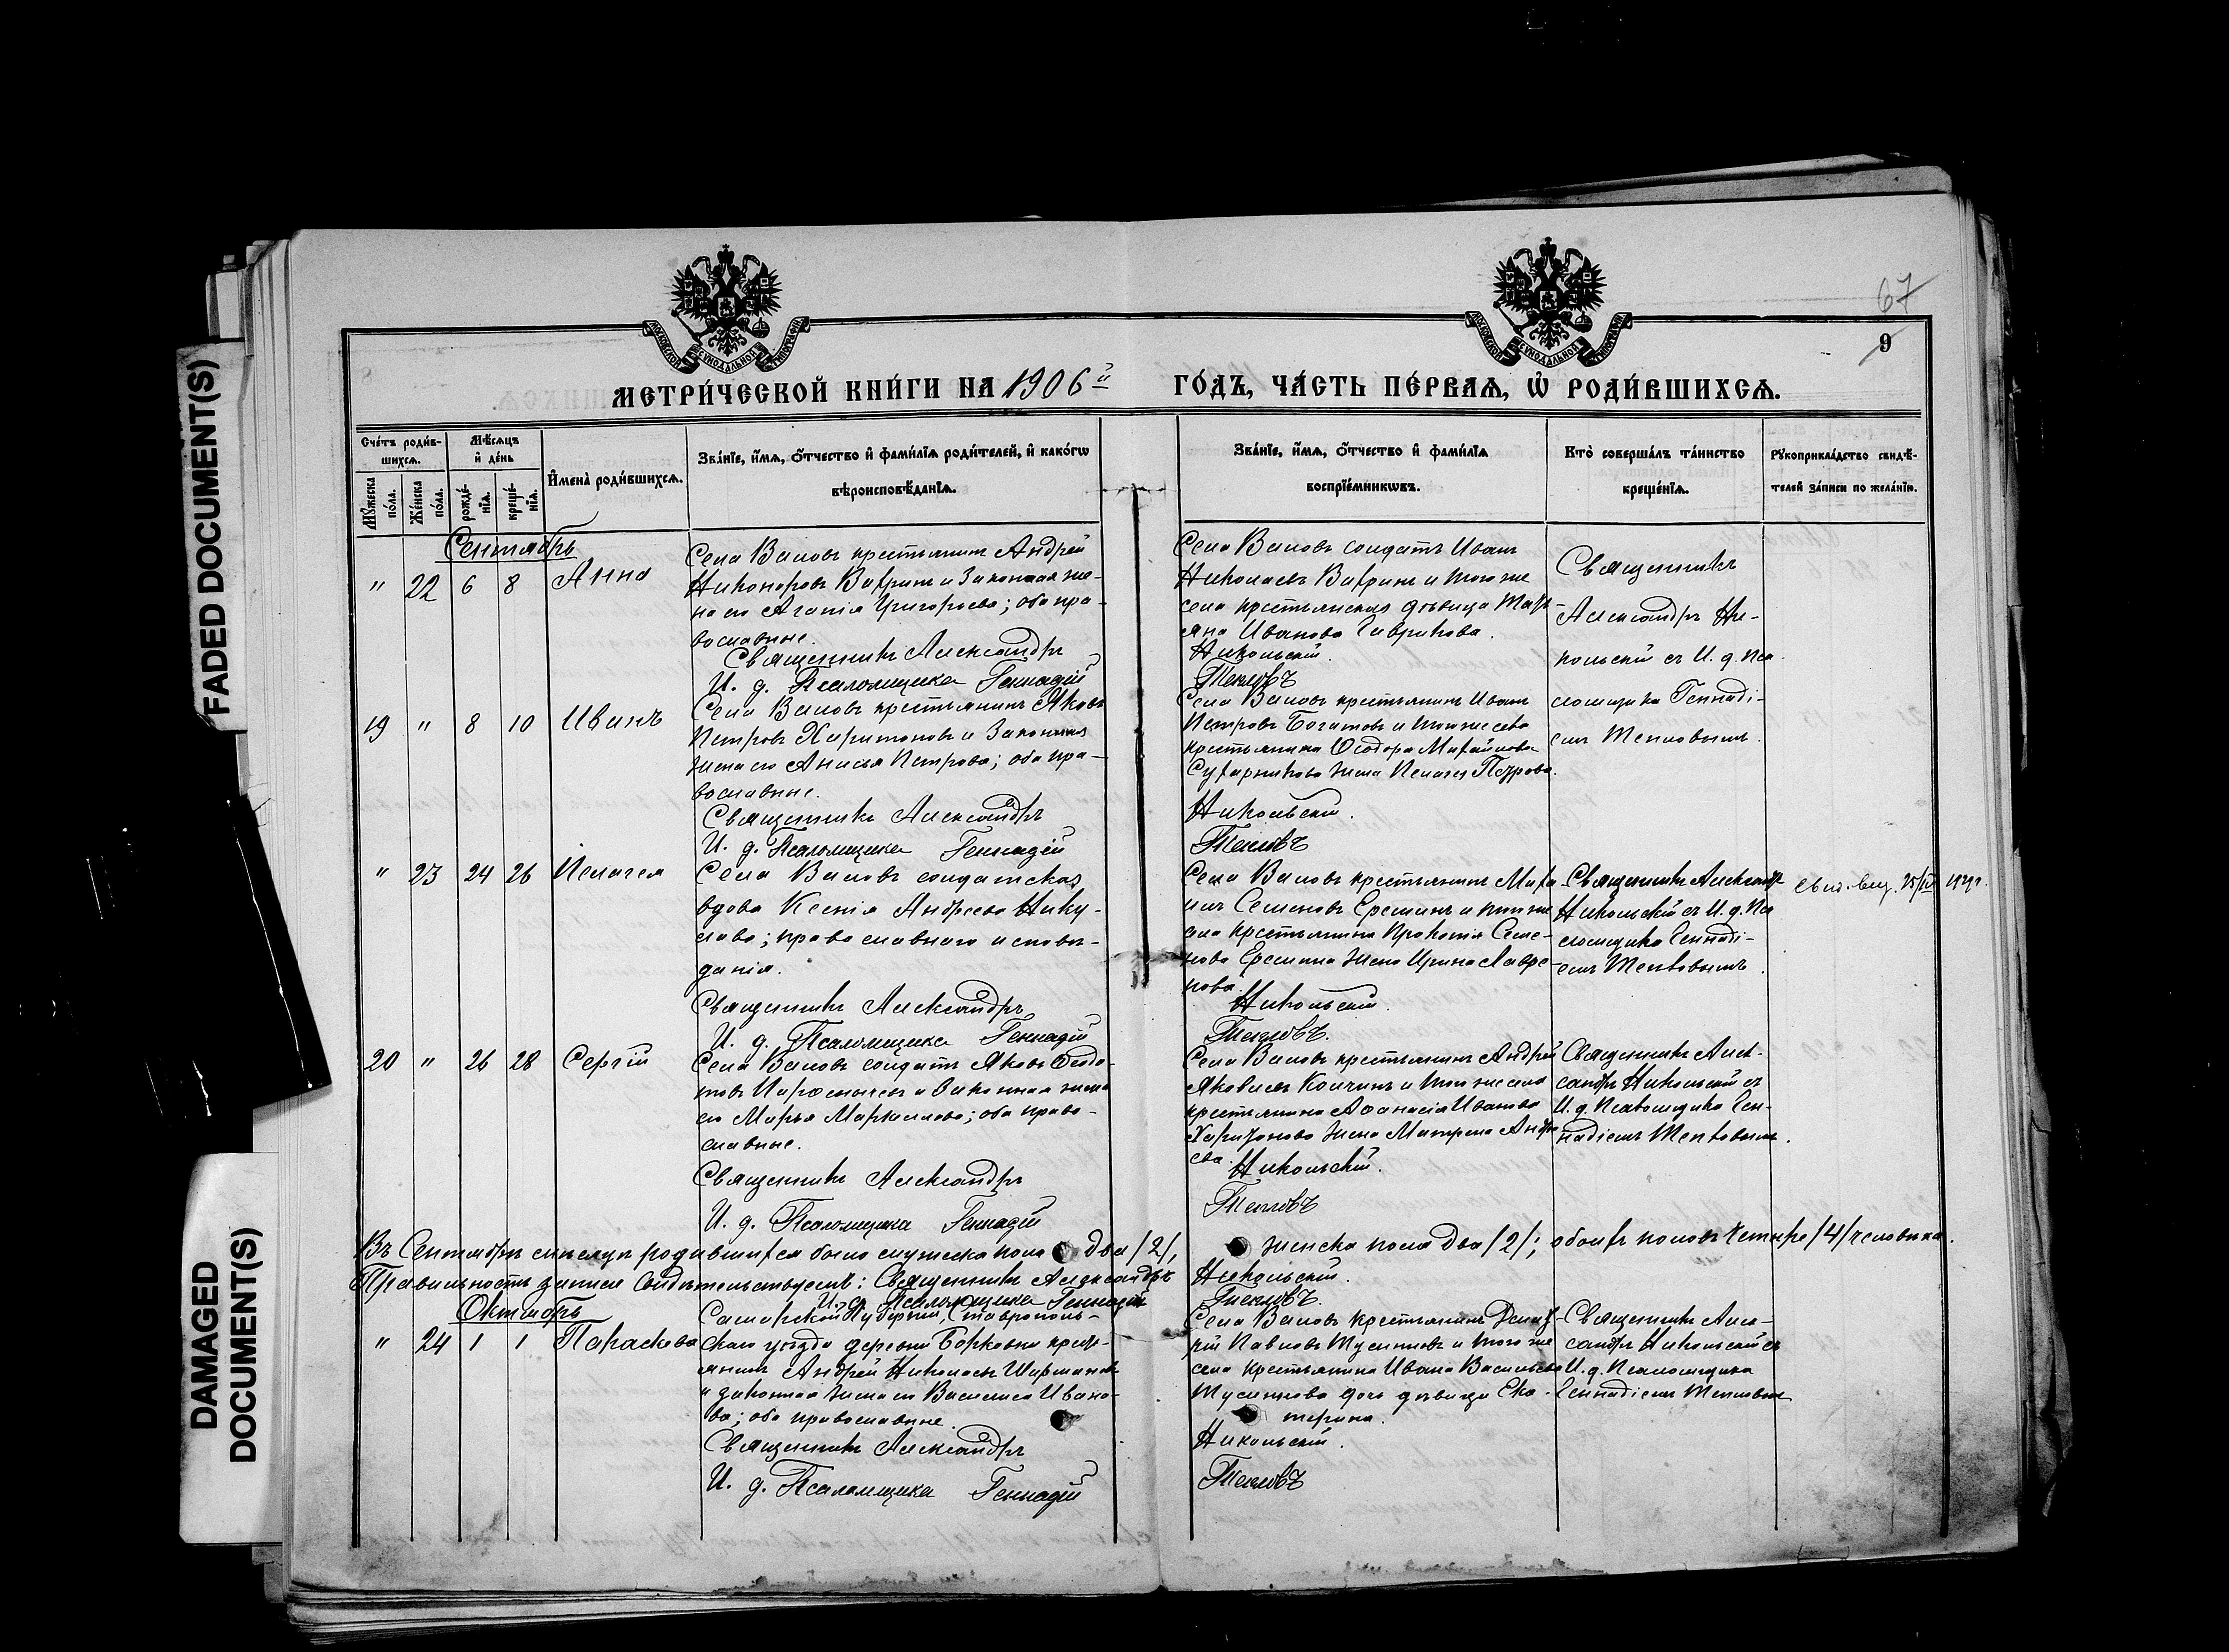 FADED DOCUMENT(S)
DAMAGED
DOCUMENT(S)
67
9
МОСКОВСКОЙ СУНОДАЛЬНОЙ ТИПОГРАФІИ
МОСКОВСКОЙ СУНОДАЛЬНОЙ ТИПОГРАФІИ
МЕТРИ́ЧЕСКОЙ КНИ́ГИ НА 1906й ГО́ДЪ, ЧА́СТЬ ПЕ́РВАѦ, Ѡ҆ РОДИ́ВШИХСѦ.
Сче́тъ роди́в-
шихсѧ.
Мѣ́сѧцъ
и҆ де́нь
И҆мена̀ роди́вшихсѧ.
Зва́нїе, и҆́мѧ, ѻ҆́тчество и҆ фами́лїѧ роди́телей, и҆ како́гѡ
вѣроисповѣ́данїѧ.
Зва́нїе, и҆́мѧ, ѻ҆́тчество и҆ фами́лїѧ
воспрїе́мникѡвъ.
Кто̀ соверша́лъ та́инство
креще́нїѧ.
Рꙋкоприкла́дство свидѣ́-
телей за́писи по жела́нїю.
Мꙋ́жеска
по́ла.
Же́нска
по́ла.
рожде́-
нїѧ.
креще́-
нїѧ.
Сентябрь
" 22 6 8 Анна
Села Валовъ крестьянинъ Андрей
Никоноровъ Вахринъ и законная же-
на его Агапія Григорьева; оба пра-
вославные.
Священникъ Александръ
И. д. Псаломщика Геннадій
Села Валовъ солдатъ Иванъ
Николаевъ Вахринъ и того же
села крестьянская дѣвица Марі-
яна Иванова Гаврикова.
Никольскій.
Тепловъ
Священникъ
Александръ Ни-
кольскій съ И. д. Пса-
ломщика Геннаді-
емъ Тепловымъ.
19 " 8 10 Иванъ
Села Валовъ крестьянинъ Яковъ
Петровъ Харитоновъ и законная
жена его Анисья Петрова; оба пра-
вославные.
Священникъ Александръ
И. д. Псаломщика Геннадій
Села Валовъ крестьянинъ Иванъ
Петровъ Богатовъ и того же села
крестьянина Ѳеодора Михайлова
Сухарникова жена Пелагея Петрова.
Никольскій.
Тепловъ
" 23 24 26 Пелагея
Села Валовъ солдатская
вдова Ксенія Андреева Нику-
лова; православнаго исповѣ-
данія.
Священникъ Александръ
И. д. Псаломщика Геннадій
Села Валовъ крестьянинъ Миха-
илъ Семеновъ Ереминъ и того же
села крестьянина Прокопія Семе-
нова Еремина жена Ирина Лавре-
нова.
Никольскій.
Тепловъ.
Священникъ Александръ
Никольскій съ И. д. Пса-
ломщика Геннаді-
емъ Тепловымъ.
20 " 26 28 Сергій
Села Валовъ солдатъ Яковъ Ѳедо-
товъ и законная жена
его Марья Маркеллова; оба право-
славные.
Священникъ Александръ
И. д. Псаломщика Геннадій
Села Валовъ крестьянинъ Андрей
Яковлевъ и того же села
крестьянина Аѳанасія Иванова
Харитонова жена Матрена Андре-
ева.
Никольскій.
Тепловъ
Священникъ Алек-
сандръ Никольскій съ
И. д. Псаломщика Ген-
надіемъ Тепловымъ.
Въ Сентябрѣ мѣсяцѣ родившихся было мужеска пола два /2/, женска пола два /2/; обоихъ половъ четыре /4/ человѣка.
Правильность записи свидѣтельствуемъ: Священникъ Александръ Никольскій.
И. д. Псаломщика Геннадій Тепловъ.
Октябрь
" 24 1 1 Параскева
Самарской Губерніи, Ставрополь-
скаго уѣзда деревни Борковки крест-
янинъ Андрей Николаевъ
и законная жена его Василиса Ивано-
ва; оба православные.
Священникъ Александръ
И. д. Псаломщика Геннадій
Села Валовъ крестьянинъ Димит-
рій Павловъ и того же
села крестьянина Ивана Васильева
дочь дѣвица Ека-
терина.
Никольскій.
Тепловъ
Священникъ Алек-
сандръ Никольскій съ
И. д. Псаломщика
Геннадіемъ Тепловымъ